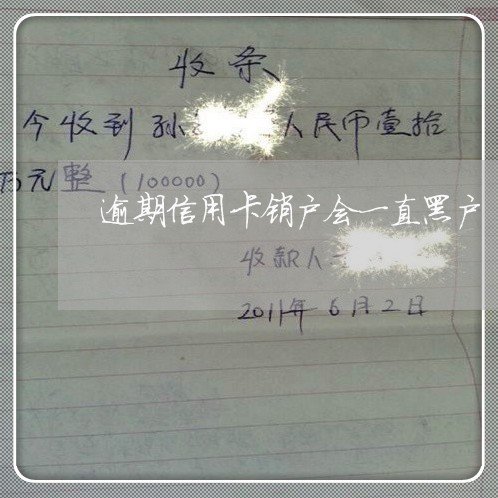 收条
今收到孙 人民币壹拾
万元整(100000)
逾期信用卡销户会一直黑户
收款人
2011年6月2日